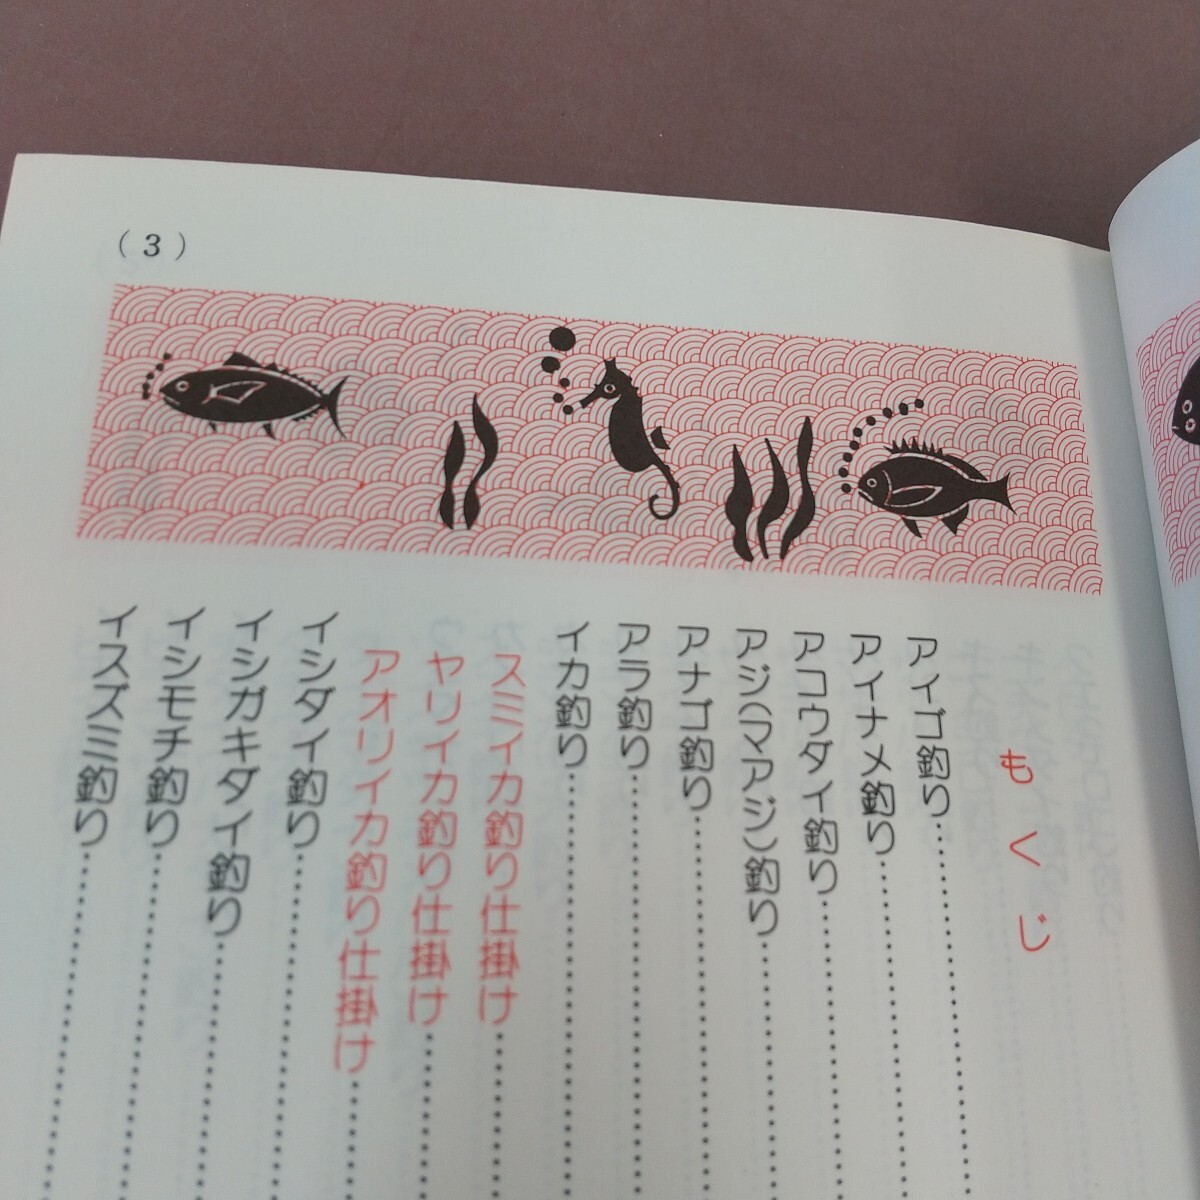 （3）
もくじ
アイゴ釣り
アイナメ釣り
アコウダイ釣り
アジ(マアジ)釣り
アナゴ釣り
アラ釣り
イカ釣り
スミイカ釣り仕掛け
ヤリイカ釣り仕掛け
アオリイカ釣り仕掛け
イシダイ釣り
イシガキダイ釣り
イシモチ釣り
イスズミ釣り